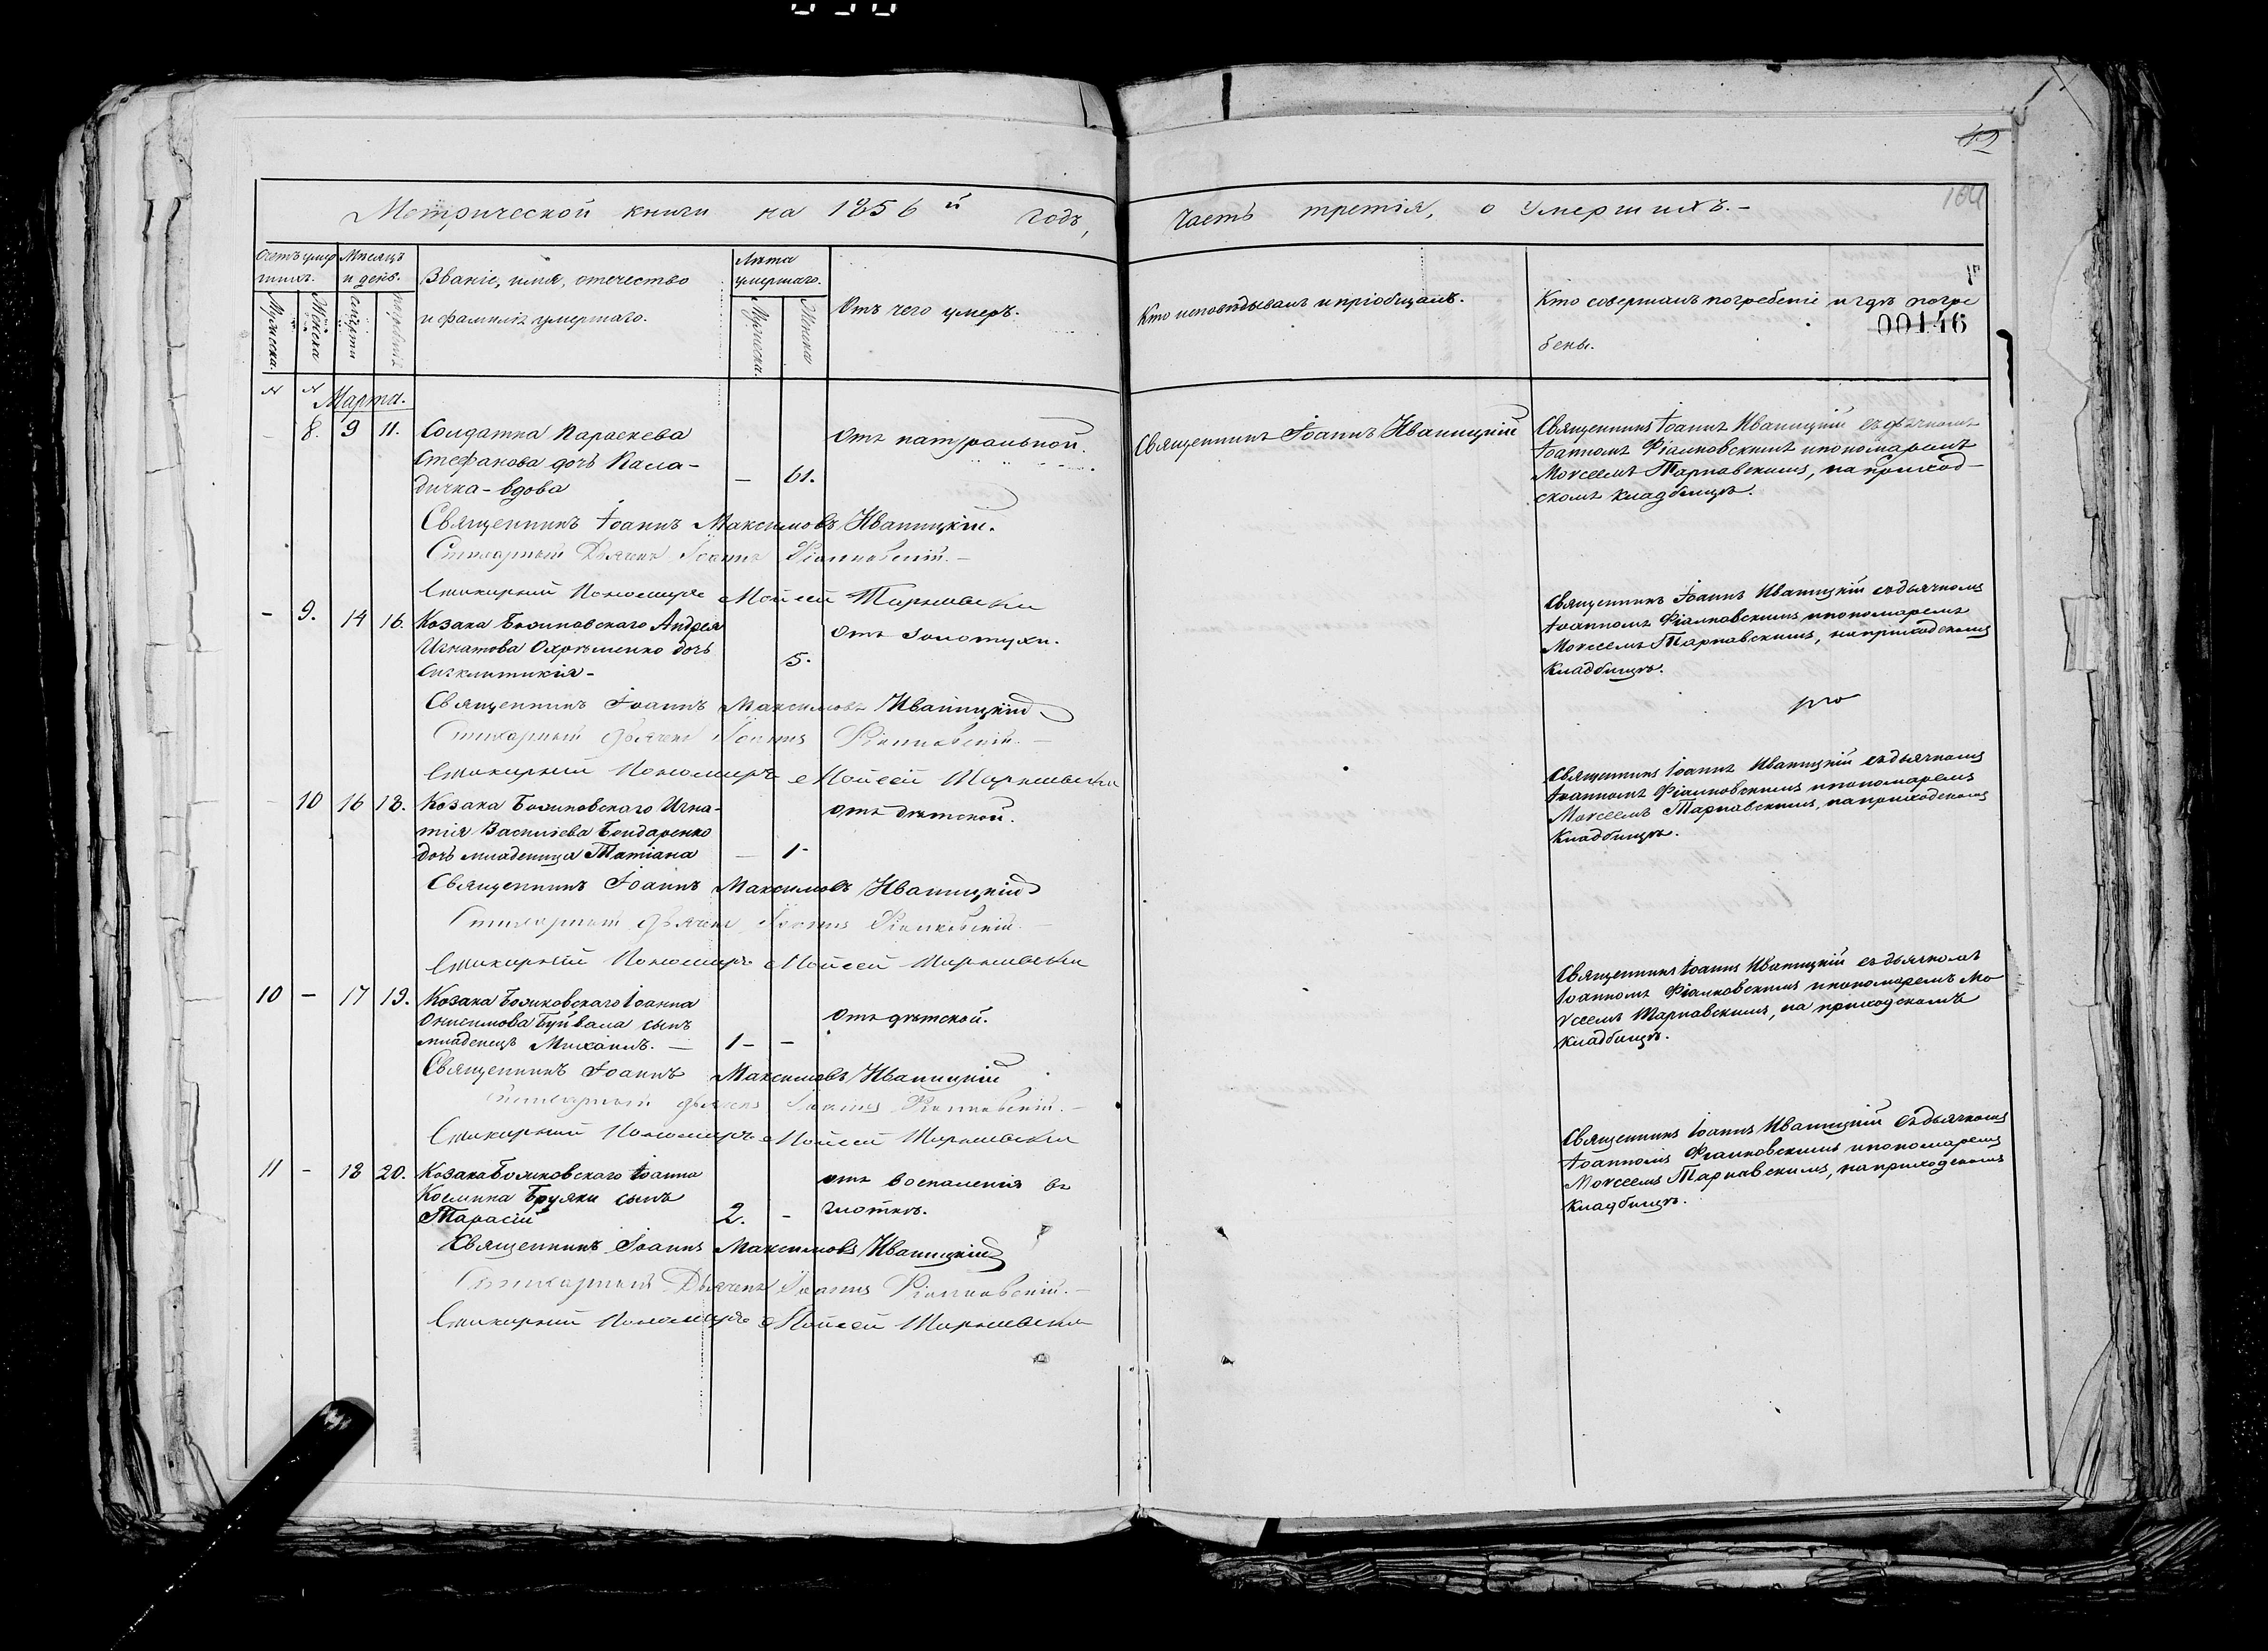 42
104
Метрической книги на 1856 й годъ,
Часть третія, о умершихъ.-
Счетъ умер
шихъ.
Мѣсяцъ
и день.
Званіе, имя, отечество
и фамилія умершаго.
Лѣта
умершаго.
Отъ чего умеръ.
Кто исповѣдывалъ и пріобщалъ.
Кто совершалъ погребеніе и гдѣ погре
бены.
00146
Мужеска.
Женска
смерти
погребенія
Мужеска.
Женска
№ № Марта.
- 8. 9 11. Солдатка Параскева
Стефанова дочь Кала-
дичка - вдова - 61.
отъ натуральной.
Священникъ Іоаннъ Иваницкій
Священникъ Іоаннъ Иваницкій съ дьячкомъ
Іоанномъ Фіалковскимъ и пономаремъ
Моѵсеемъ Тарнавскимъ, на приход-
скомъ кладбищѣ.
Священникъ Іоаннъ Максимовъ Иваницкій.
Стихарный Дьячекъ Іоаннъ Фіалковскій.-
Стихарный Пономарь Мойсей Тарнавскій
- 9. 14 16. Козака Боликовскаго Андрея
Игнатова Охрѣменко дочь
Сигклитикія - 5.
отъ золотухи.
Священникъ Іоаннъ Иваницкій съ дьячкомъ
Іоанномъ Фіалковскимъ и пономаремъ
Моѵсеемъ Тарнавскимъ, на приходскомъ
кладбищѣ.
Священникъ Іоаннъ Максимовъ Иваницкій
Стихарный Дьячекъ Іоаннъ Фіалковскій.-
Стихарный Пономарь Мойсей Тарнавскій
10 16 18. Козака Боликовскаго Игна-
тія Василіева Бондаренко
дочь младенца Татіана - 1-
отъ дѣтской.
Священникъ Іоаннъ Иваницкій съ дьячкомъ
Іоанномъ Фіалковскимъ и пономаремъ
Моѵсеемъ Тарнавскимъ, на приходскомъ
кладбищѣ.
Священникъ Іоаннъ Максимовъ Иваницкій
Стихарный Дьячекъ Іоаннъ Фіалковскій.-
Стихарный Пономарь Мойсей Тарнавскій
10 - 17 19. Козака Боликовскаго Іоанна
Онисимова Буйвала сынъ
младенецъ Михаилъ. - 1- -
отъ дѣтской.
Священникъ Іоаннъ Иваницкій съ дьячкомъ
Іоанномъ Фіалковскимъ и пономаремъ Мо
ѵсеемъ Тарнавскимъ, на приходскомъ
кладбищѣ.
Священникъ Іоаннъ Максимовъ Иваницкій
Стихарный дьячекъ Іоаннъ Фіалковскій.-
Стихарный Пономарь Мойсей Тарнавскій
11 - 18 20. Козака Боликовскаго Іоанна
Космина Бруяки сынъ
Тарасій 2. -
отъ воспаленія въ
глоткѣ.
Священникъ Іоаннъ Иваницкій съ дьячкомъ
Іоанномъ Фіалковскимъ и пономаремъ
Моѵсеемъ Тарнавскимъ, на приходскомъ
кладбищѣ.
Священникъ Іоаннъ Максимовъ Иваницкій
Стихарный Дьячекъ Іоаннъ Фіалковскій.-
Стихарный Пономарь Мойсей Тарнавскій